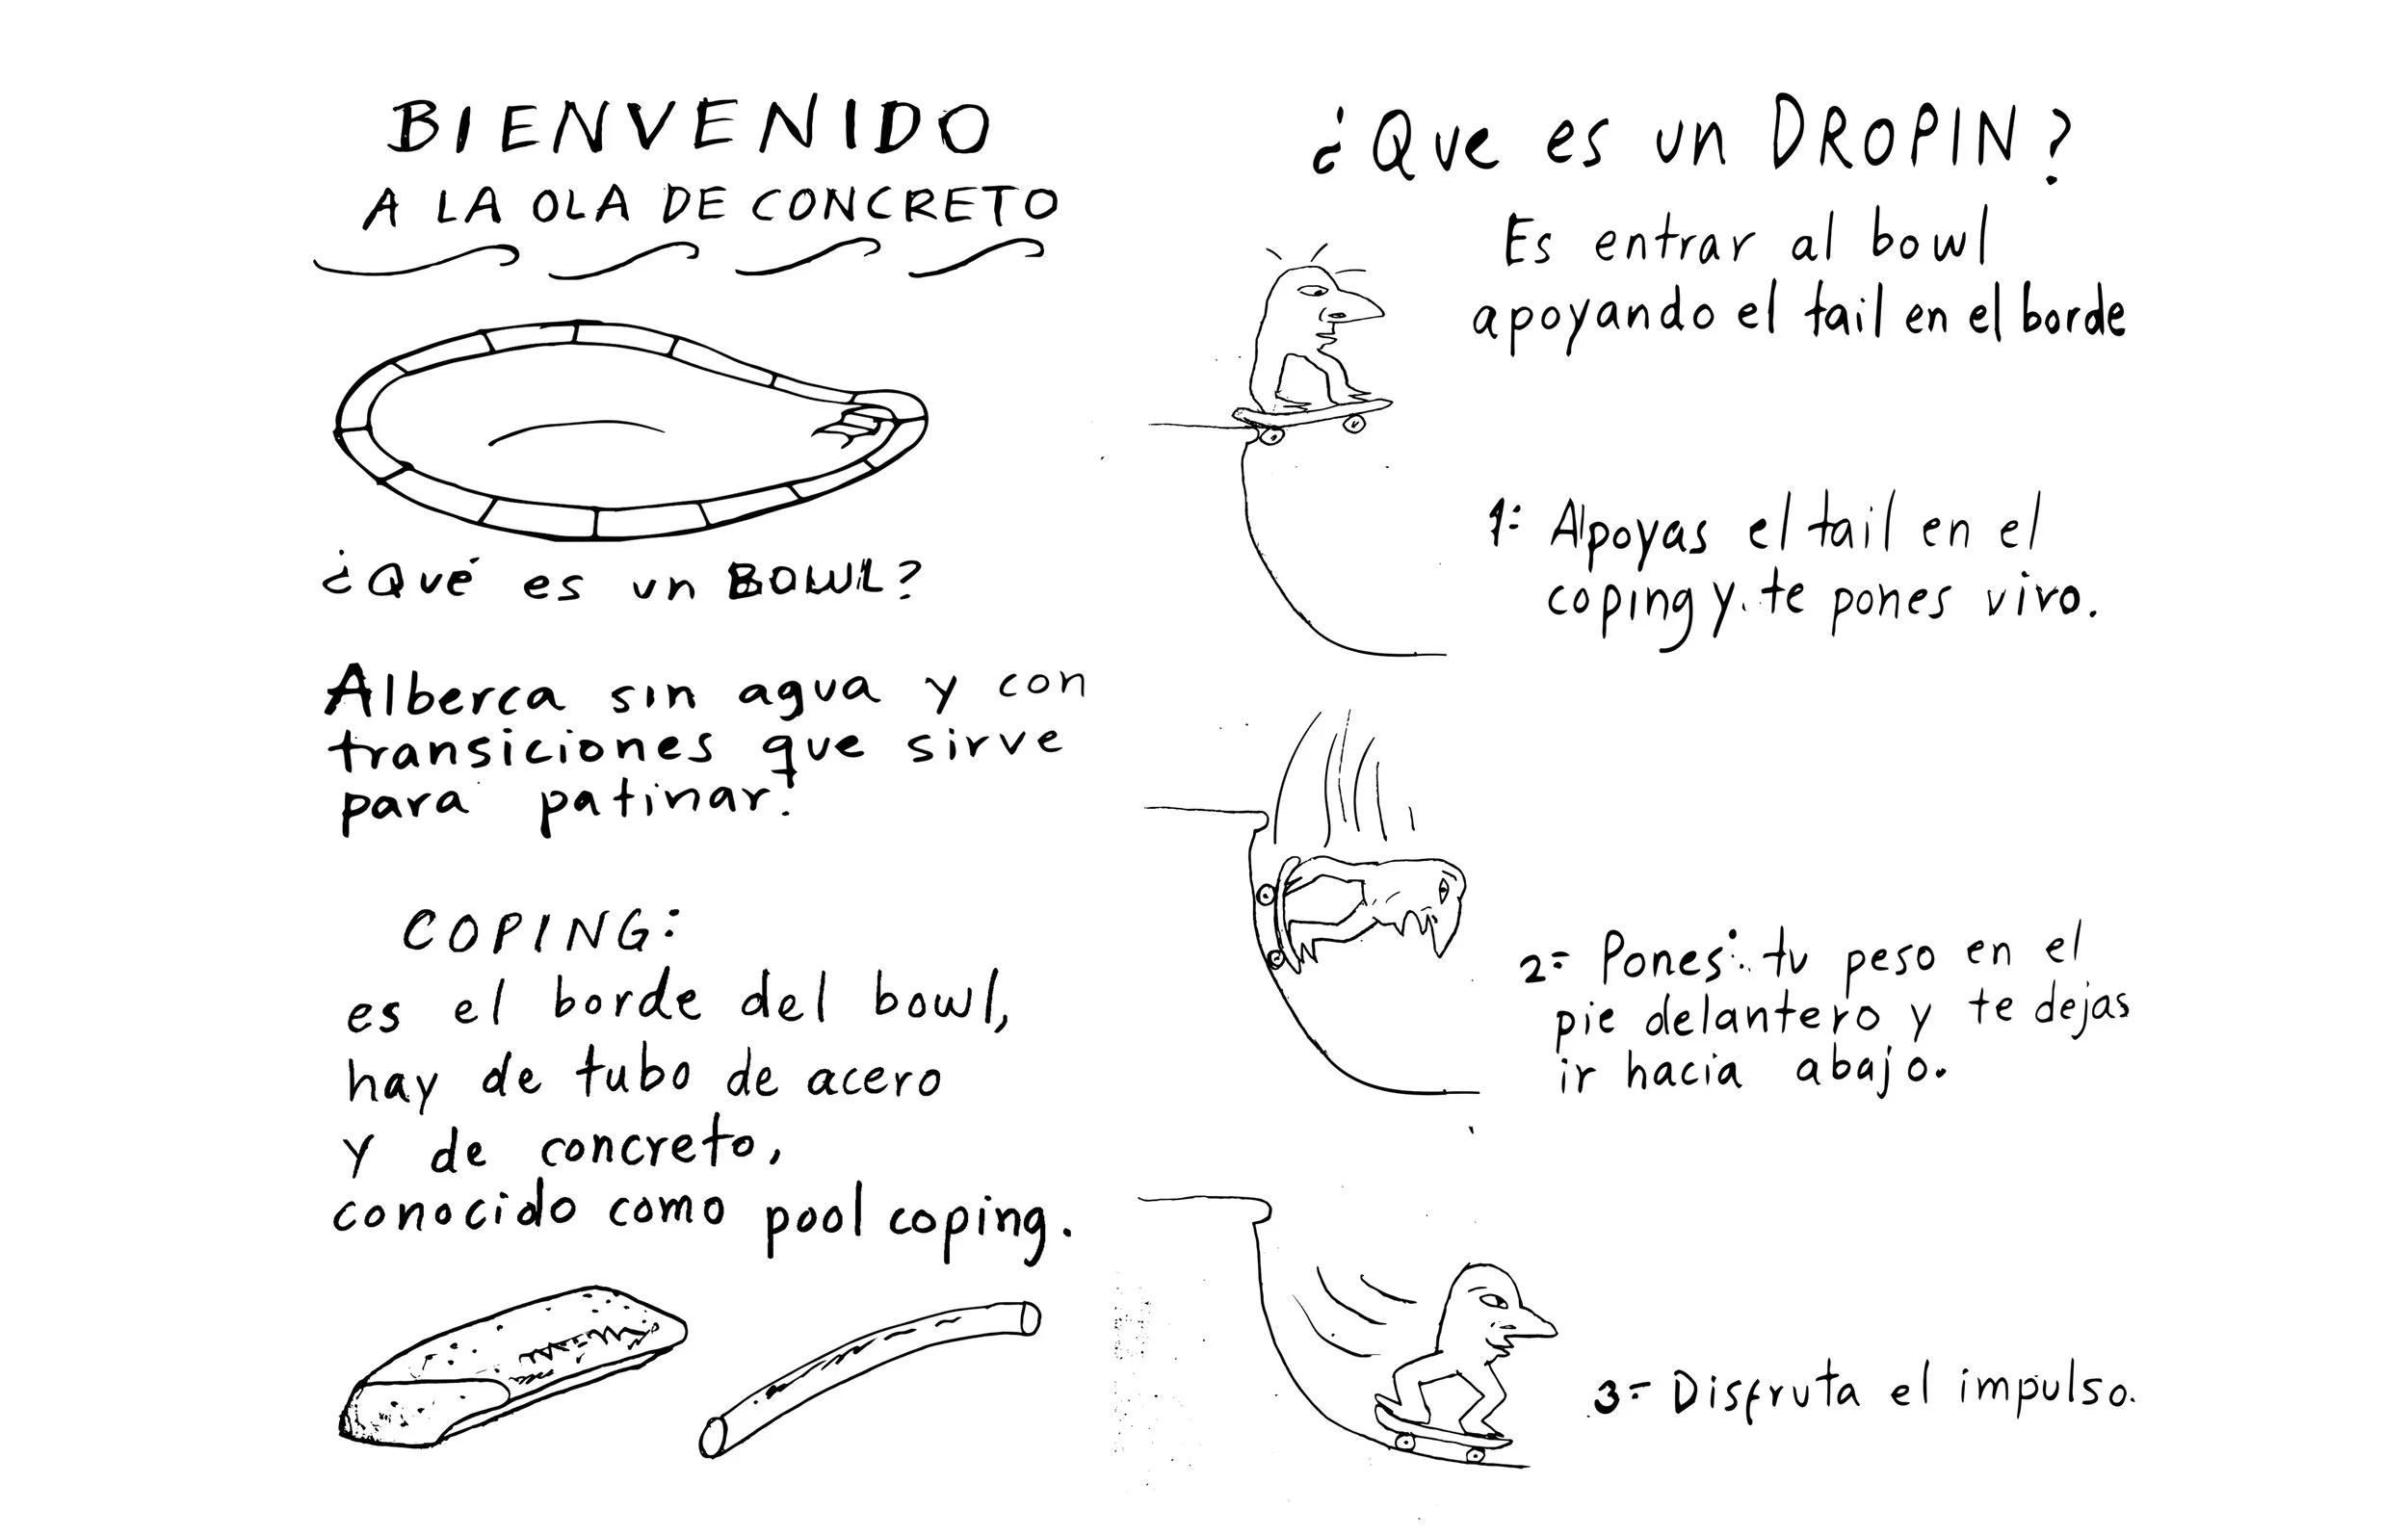 BIENVENIDO
A LA OLA DE CONCRETO
¿Qué es un BOWL?
Alberca sin agua y con
transiciones que sirve
para patinar.
COPING:
es el borde del bowl,
hay de tubo de acero
y de concreto,
conocido como pool coping.
¿Que es un DROPIN?
Es entrar al bowl
apoyando el tail en el borde
1: Apoyas el tail en el
coping y te pones vivo.
2= Pones tu peso en el
pie delantero y te dejas
ir hacia abajo.
3= Disfruta el impulso.